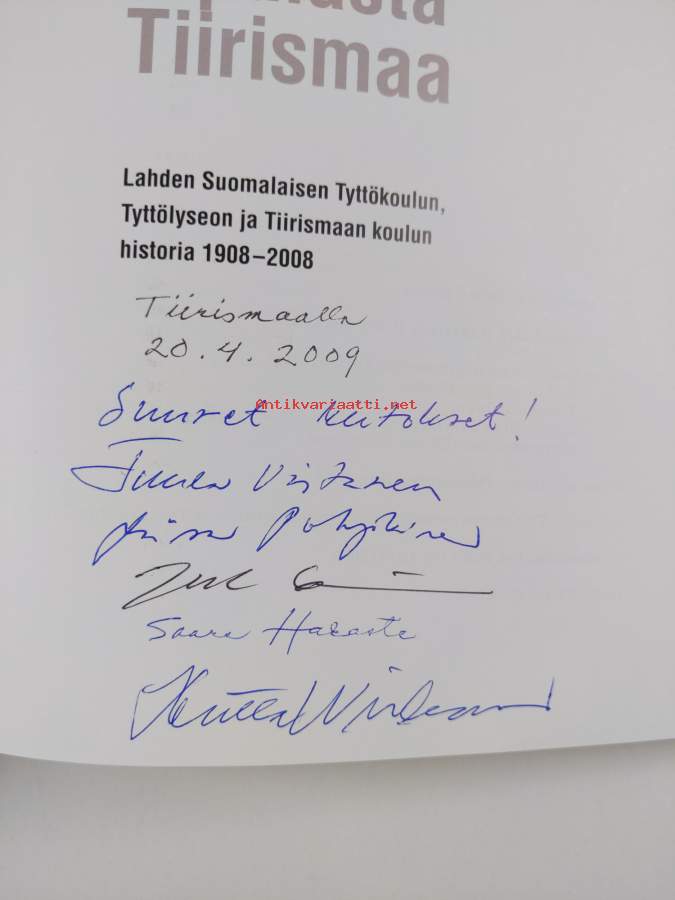 Tiirismaa
Lahden Suomalaisen Tyttökoulun,
Tyttölyseon ja Tiirismaan koulun
historia 1908–2008
Tiirismaalla
20.4.2009
Antikvariaatti.net
Suuret kiitokset!
Virtanen
Saara Hakaste